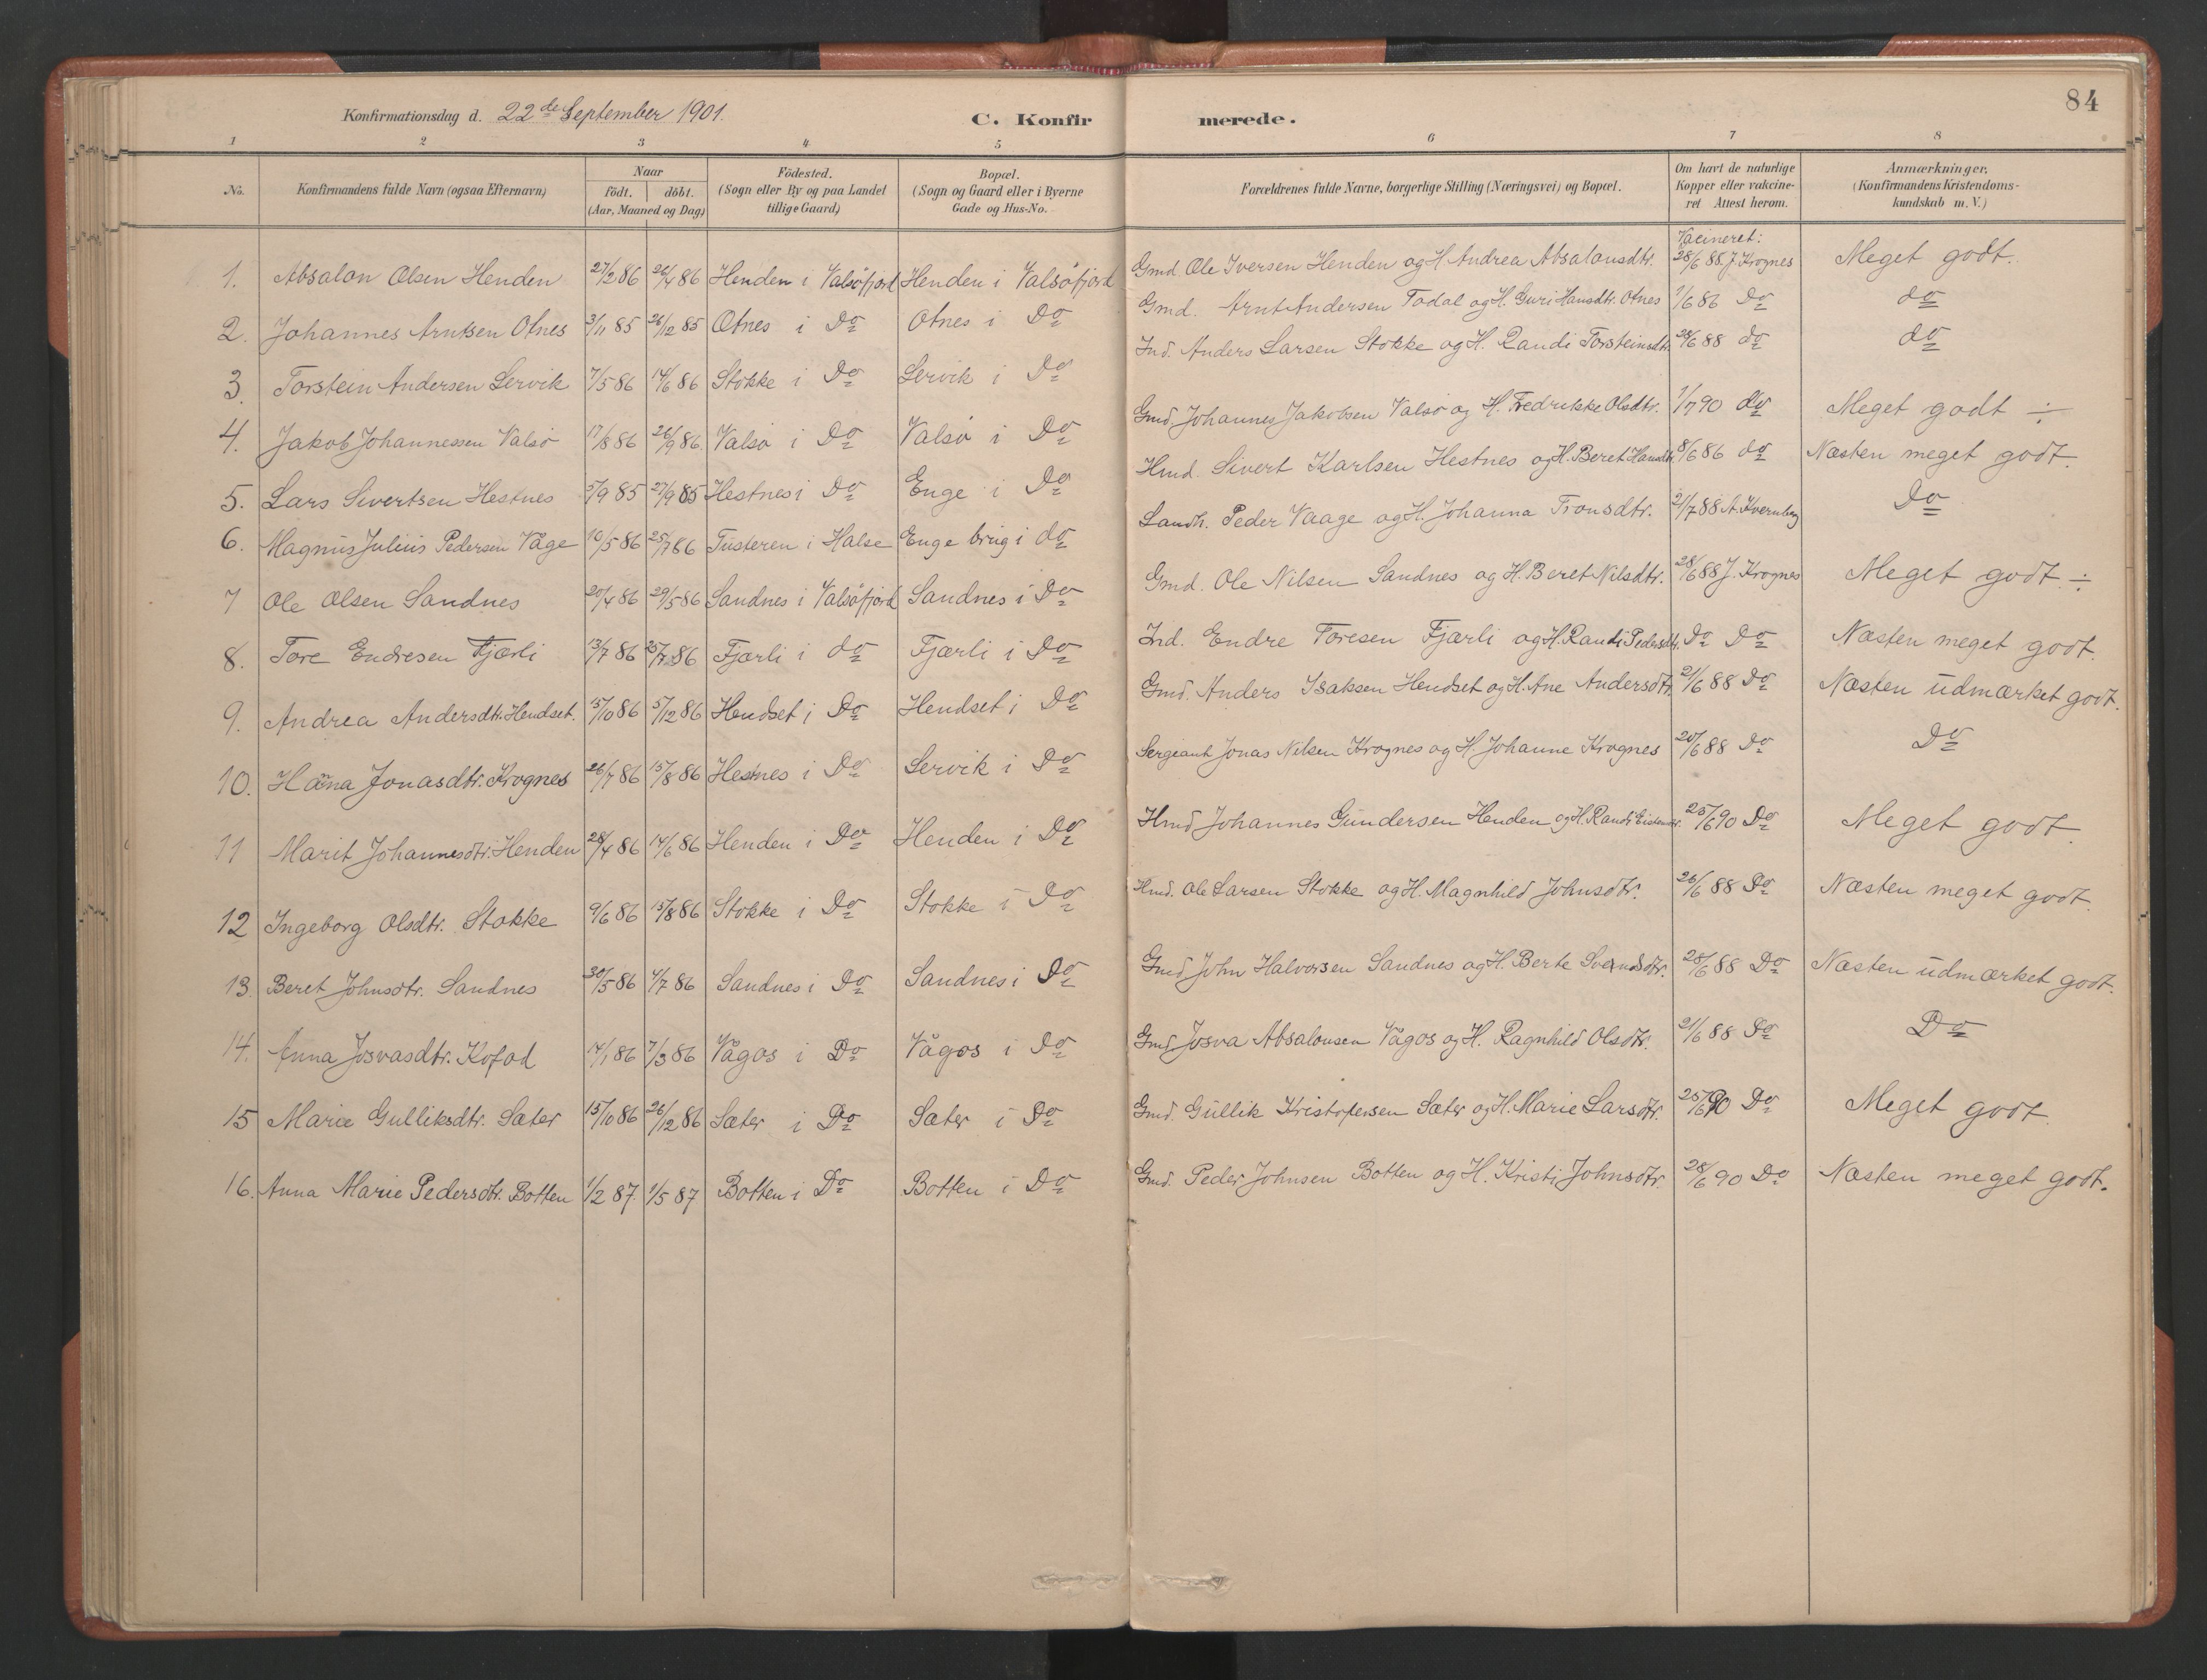 84
Konfirmationsdag d. 22de September 1901.
C. Konfirmerede.
1 2 3 4 5 6 7 8
No. Konfirmandens fulde Navn (ogsaa Efternavn) Naar födt. döbt. (Aar, Maaned og Dag) Födested. (Sogn eller By og paa Landet tillige Gaard) Bopæl. (Sogn og Gaard eller i Byerne Gade og Hus-No. Forældrenes fulde Navne, borgerlige Stilling (Næringsvei) og Bopæl. Om havt de naturlige Kopper eller vakcineret Attest herom. Anmærkninger, (Konfirmandens Kristendomskundskab m. V.)
Vacineret:
1. Absalon Olsen Henden 27/2 86 26/4 86 Henden i Valsöfjord Henden i Valsöfjord Gmd. Ole Iversen Henden og H. Andrea Absalonsdtr. 28/6 88 J. Krognes Meget godt.
2. Johannes Arntsen Otnes 3/11 85 26/12 85 Otnes i Do Otnes i Do Gmd. Arnt Andersen Todal og H. Guri Hansdtr. Otnes 1/6 86 Do do
3. Torstein Andersen Servik 7/5 86 14/6 86 Stokke i Do Servik i Do Ind. Anders Larsen Stokke og H. Randi Torsteinsdtr. 28/6 88 do do
4. Jakob Johannessen Valsö 17/8 86 26/9 86 Valsö i Do Valsö i Do Gmd. Johannes Jakobsen Valsö og H. Fredrikke Olsdtr. 1/7 90 do Meget godt ÷
5. Lars Sivertsen Hestnes 5/9 85 27/9 85 Hestnes i Do Enge i Do Hmd. Sivert Karlsen Hestnes og H. Beret Hansdtr. 8/6 86 do Næsten meget godt.
6. Magnus Julius Pedersen Våge 10/5 86 25/7 86 Tusteren i Halse Enge brug i do Landh. Peder Vaage og H. Johanna Tronsdtr. 21/7 88 A. Kvernberg Do
7 Ole Olsen Sandnes 20/4 86 29/5 86 Sandnes i Valsöfjord Sandnes i Do Gmd. Ole Nilsen Sandnes og H. Beret Nilsdtr. 28/6 88 J. Krognes Meget godt ÷
8. Tore Endresen Fjærli 13/7 86 25/7 86 Fjærli i do Fjærli i Do Ind. Endre Toresen Fjærli og H. Randi Pedersdtr. Do Do Næsten meget godt.
9. Andrea Andersdtr. Hendset. 15/10 86 5/12 86 Hendset i Do Hendset i Do Gmd. Anders Isaksen Hendset og H. Ane Andersdtr. 21/6 88 Do Næsten udmærket godt.
10. Hanna Jonasdtr. Krognes 26/7 86 15/8 86 Hestnes i Do Servik i Do Sergeant Jonas Nilsen Krognes og H. Johanne Krognes 20/6 88 Do Do
11 Marit Johannesdtr. Henden 28/4 86 14/6 86 Henden i Do Henden i Do Hmd Johannes Gundersen Henden og H. Randi 25/6 90 Do Meget godt
12 Ingeborg Olsdtr. Stokke 9/6 86 15/8 86 Stokke i Do Stokke i Do Hmd. Ole Larsen Stokke og H. Magnhild Johnsdtr. 26/6 88 Do Næsten meget godt.
13. Beret Johnsdtr. Sandnes 30/5 86 4/7 86 Sandnes i Do Sandnes i Do Gmd John Halvorsen Sandnes og H. Berte Svendsdtr. 28/6 88 Do Næsten udmærket godt.
14. Anna Josvasdtr. Kofod 14/1 86 7/3 86 Vågos i Do Vågos i Do Gmd. Josva Absalonsen Vågos og H. Ragnhild Olsdtr. 21/6 88 Do Do
15 Marie Gulliksdtr. Sæter 15/10 86 26/12 86 Sæter i Do Sæter i Do Gmd. Gullik Kristofersen Sæter og H. Marie Larsdtr. 25/6 90 Do Meget godt.
16. Anna Marie Pedersdtr. Botten 1/2 87. 1/5 87 Botten i Do Botten i Do Gmd. Peder Johnsen Botten og H. Kristi Johnsdtr. 28/6 90 Do Næsten meget godt.